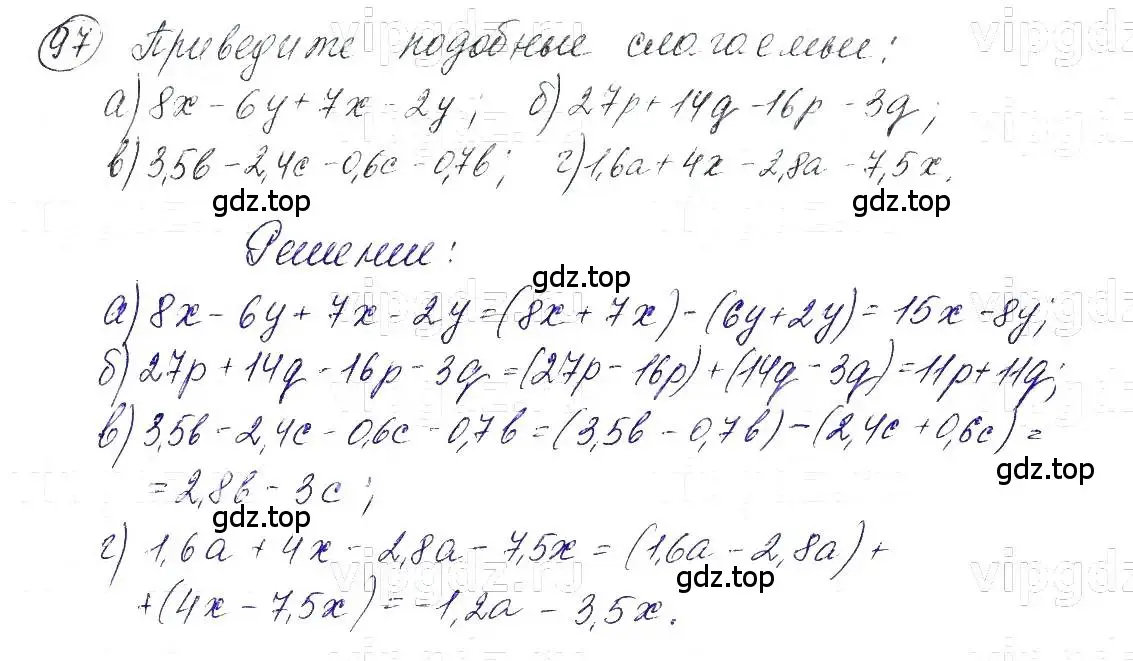 97 Приведите подобные слагаемые:
а) 8x - 6y + 7x - 2y; б) 27p + 14q - 16p - 3q;
в) 3,5b - 2,4c - 0,6c - 0,7b; г) 1,6a + 4x - 2,8a - 7,5x.
gdz.top gdz.top
Решение:
gdz.top
а) 8x - 6y + 7x - 2y = (8x + 7x) - (6y + 2y) = 15x - 8y;
б) 27p + 14q - 16p - 3q = (27p - 16p) + (14q - 3q) = 11p + 11q;
в) 3,5b - 2,4c - 0,6c - 0,7b = (3,5b - 0,7b) - (2,4c + 0,6c) =
gdz.top
= 2,8b - 3c;
gdz.top
г) 1,6a + 4x - 2,8a - 7,5x = (1,6a - 2,8a) +
gdz.top
+ (4x - 7,5x) = -1,2a - 3,5x.